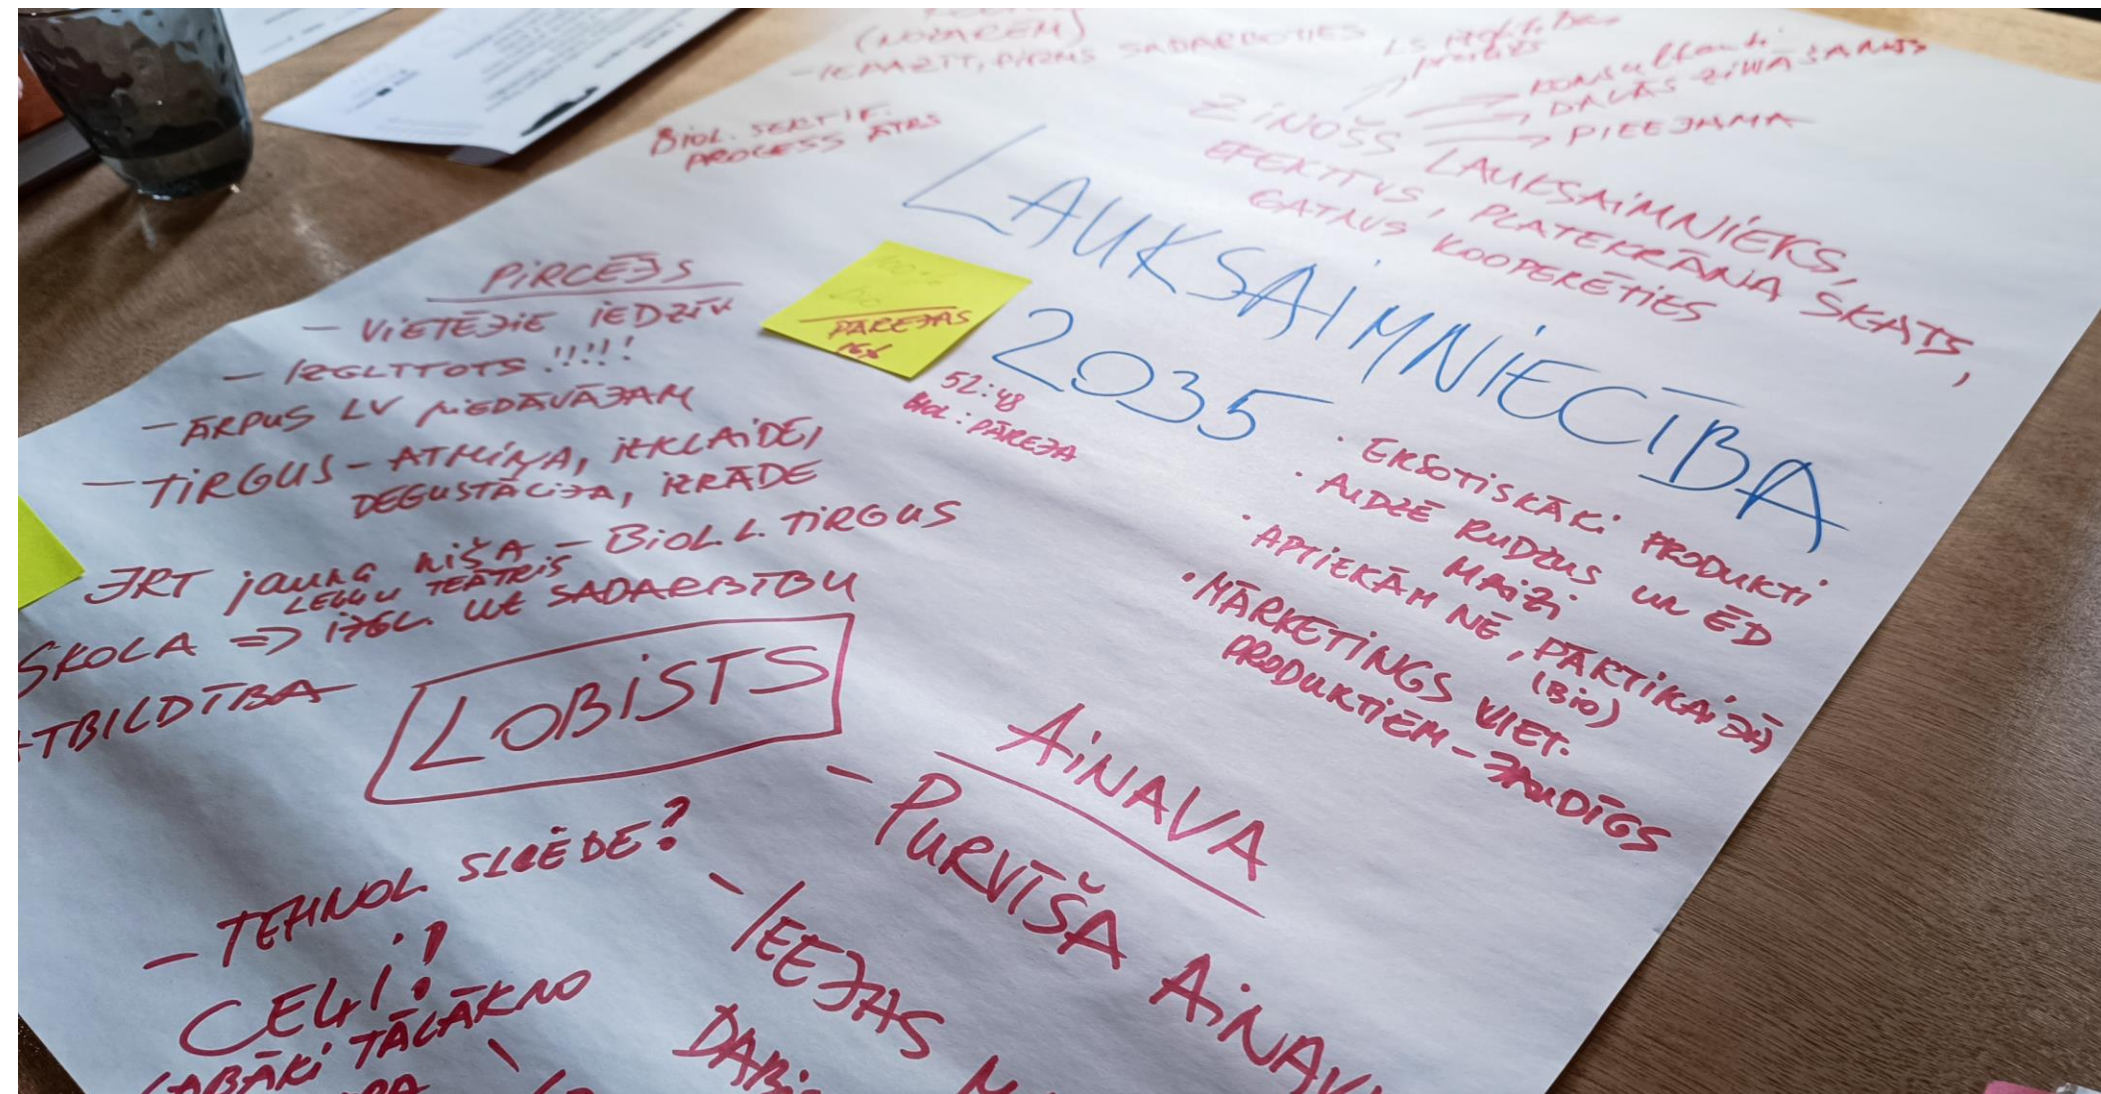 (NOZARĒM)
- IEPAZĪT, PIRMS SADARBOTIES
BIOL. SERTIF.
PROCESS ĀTRS
LS izglītības
prestižs
konsultanti
DALĀS ZINĀŠANĀS
PIEEJAMA
ZINOŠS LAUKSAIMNIEKS,
EFEKTĪVS, PLATEKRĀNA SKATS,
GATAVS KOOPERĒTIES
LAUKSAIMNIECĪBA
2035
100%
PĀREJAS
52:48
BIOL: PĀREJA
PIRCĒJS
- VIETĒJIE IEDZĪV
- IZGLĪTOTS !!!!!
- ĀRPUS LV PIEDĀVĀJAM
- TIRGUS - ATMIŅA, IZKLAIDE,
DEGUSTĀCIJA, IZRĀDE
JRT jauna NIŠA - BIOL. L. TIRGUS
LEĻĻU TEĀTRIS
SKOLA => IZGL. UN SADARBĪBU
ATBILDĪBA
LOBISTS
· EKSOTISKĀKI PRODUKTI
· AUDZĒ RUDZUS UN ĒD
MAIZI
· APTIEKĀM NĒ, PĀRTIKAI JĀ
(BIO)
· MĀRKETINGS VIET.
PRODUKTIEM - JAUDĪGS
AINAVA
- PURVĪŠA AINAV
- IEEJAS
DABI
- TEHNOL. SLĒDE?
CEĻI?
LABĀKI TĀLĀK NO